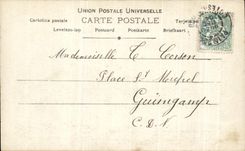 UNION POSTALE UNIVERSELLE
CARTE POSTALE
Cartolina postale
Levelező-lap Postcard Postkarte Briefkaart
Mademoiselle C. Corson
Place St
Guingamp
C. D. N